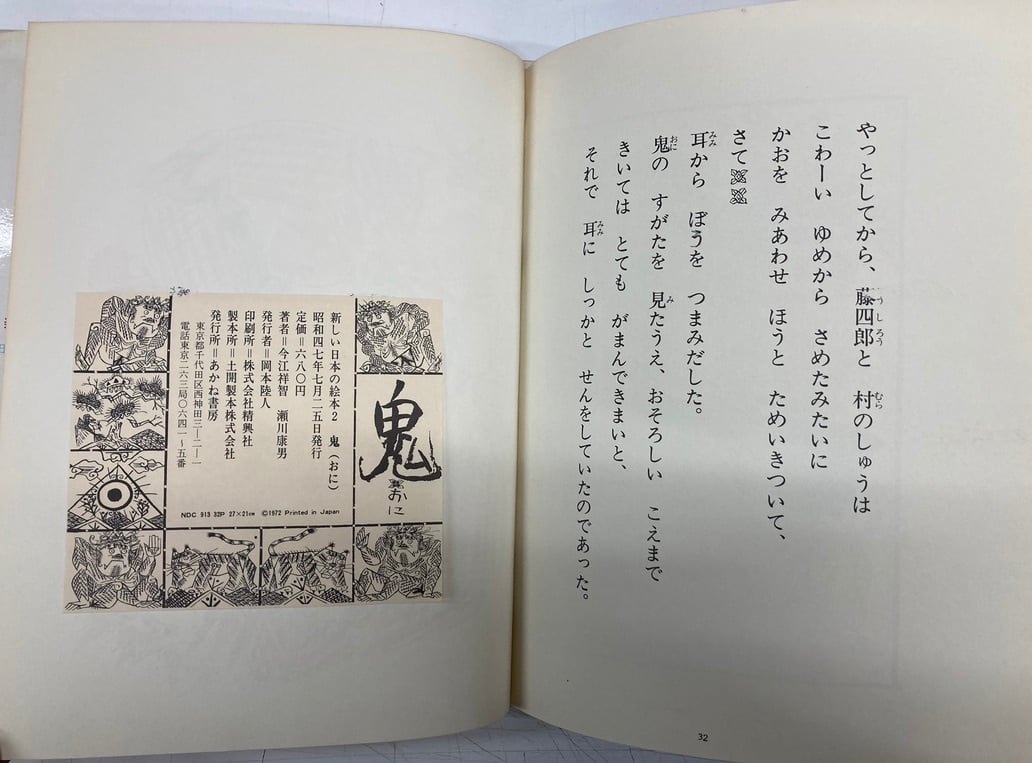 やっとしてから、藤四郎と 村のしゅうは
こわーい ゆめから さめたみたいに
かおを みあわせ ほうと ためいきついて、
さて
耳から ぼうを つまみだした。
鬼の すがたを 見たうえ、おそろしい こえまで
きいては とても がまんできまいと、
それで 耳に しっかと せんをしていたのであった。
32
鬼
おに
新しい日本の絵本2 鬼(おに)
昭和四七年七月二五日発行
定価=六八〇円
著者=今江祥智 瀬川康男
発行者=岡本陸人
印刷所=株式会社精興社
製本所=土開製本株式会社
発行所=あかね書房
東京都千代田区西神田三―二―一
電話東京二六三局〇六四一~五番
NDC 913 32P 27×21cm ©1972 Printed in Japan